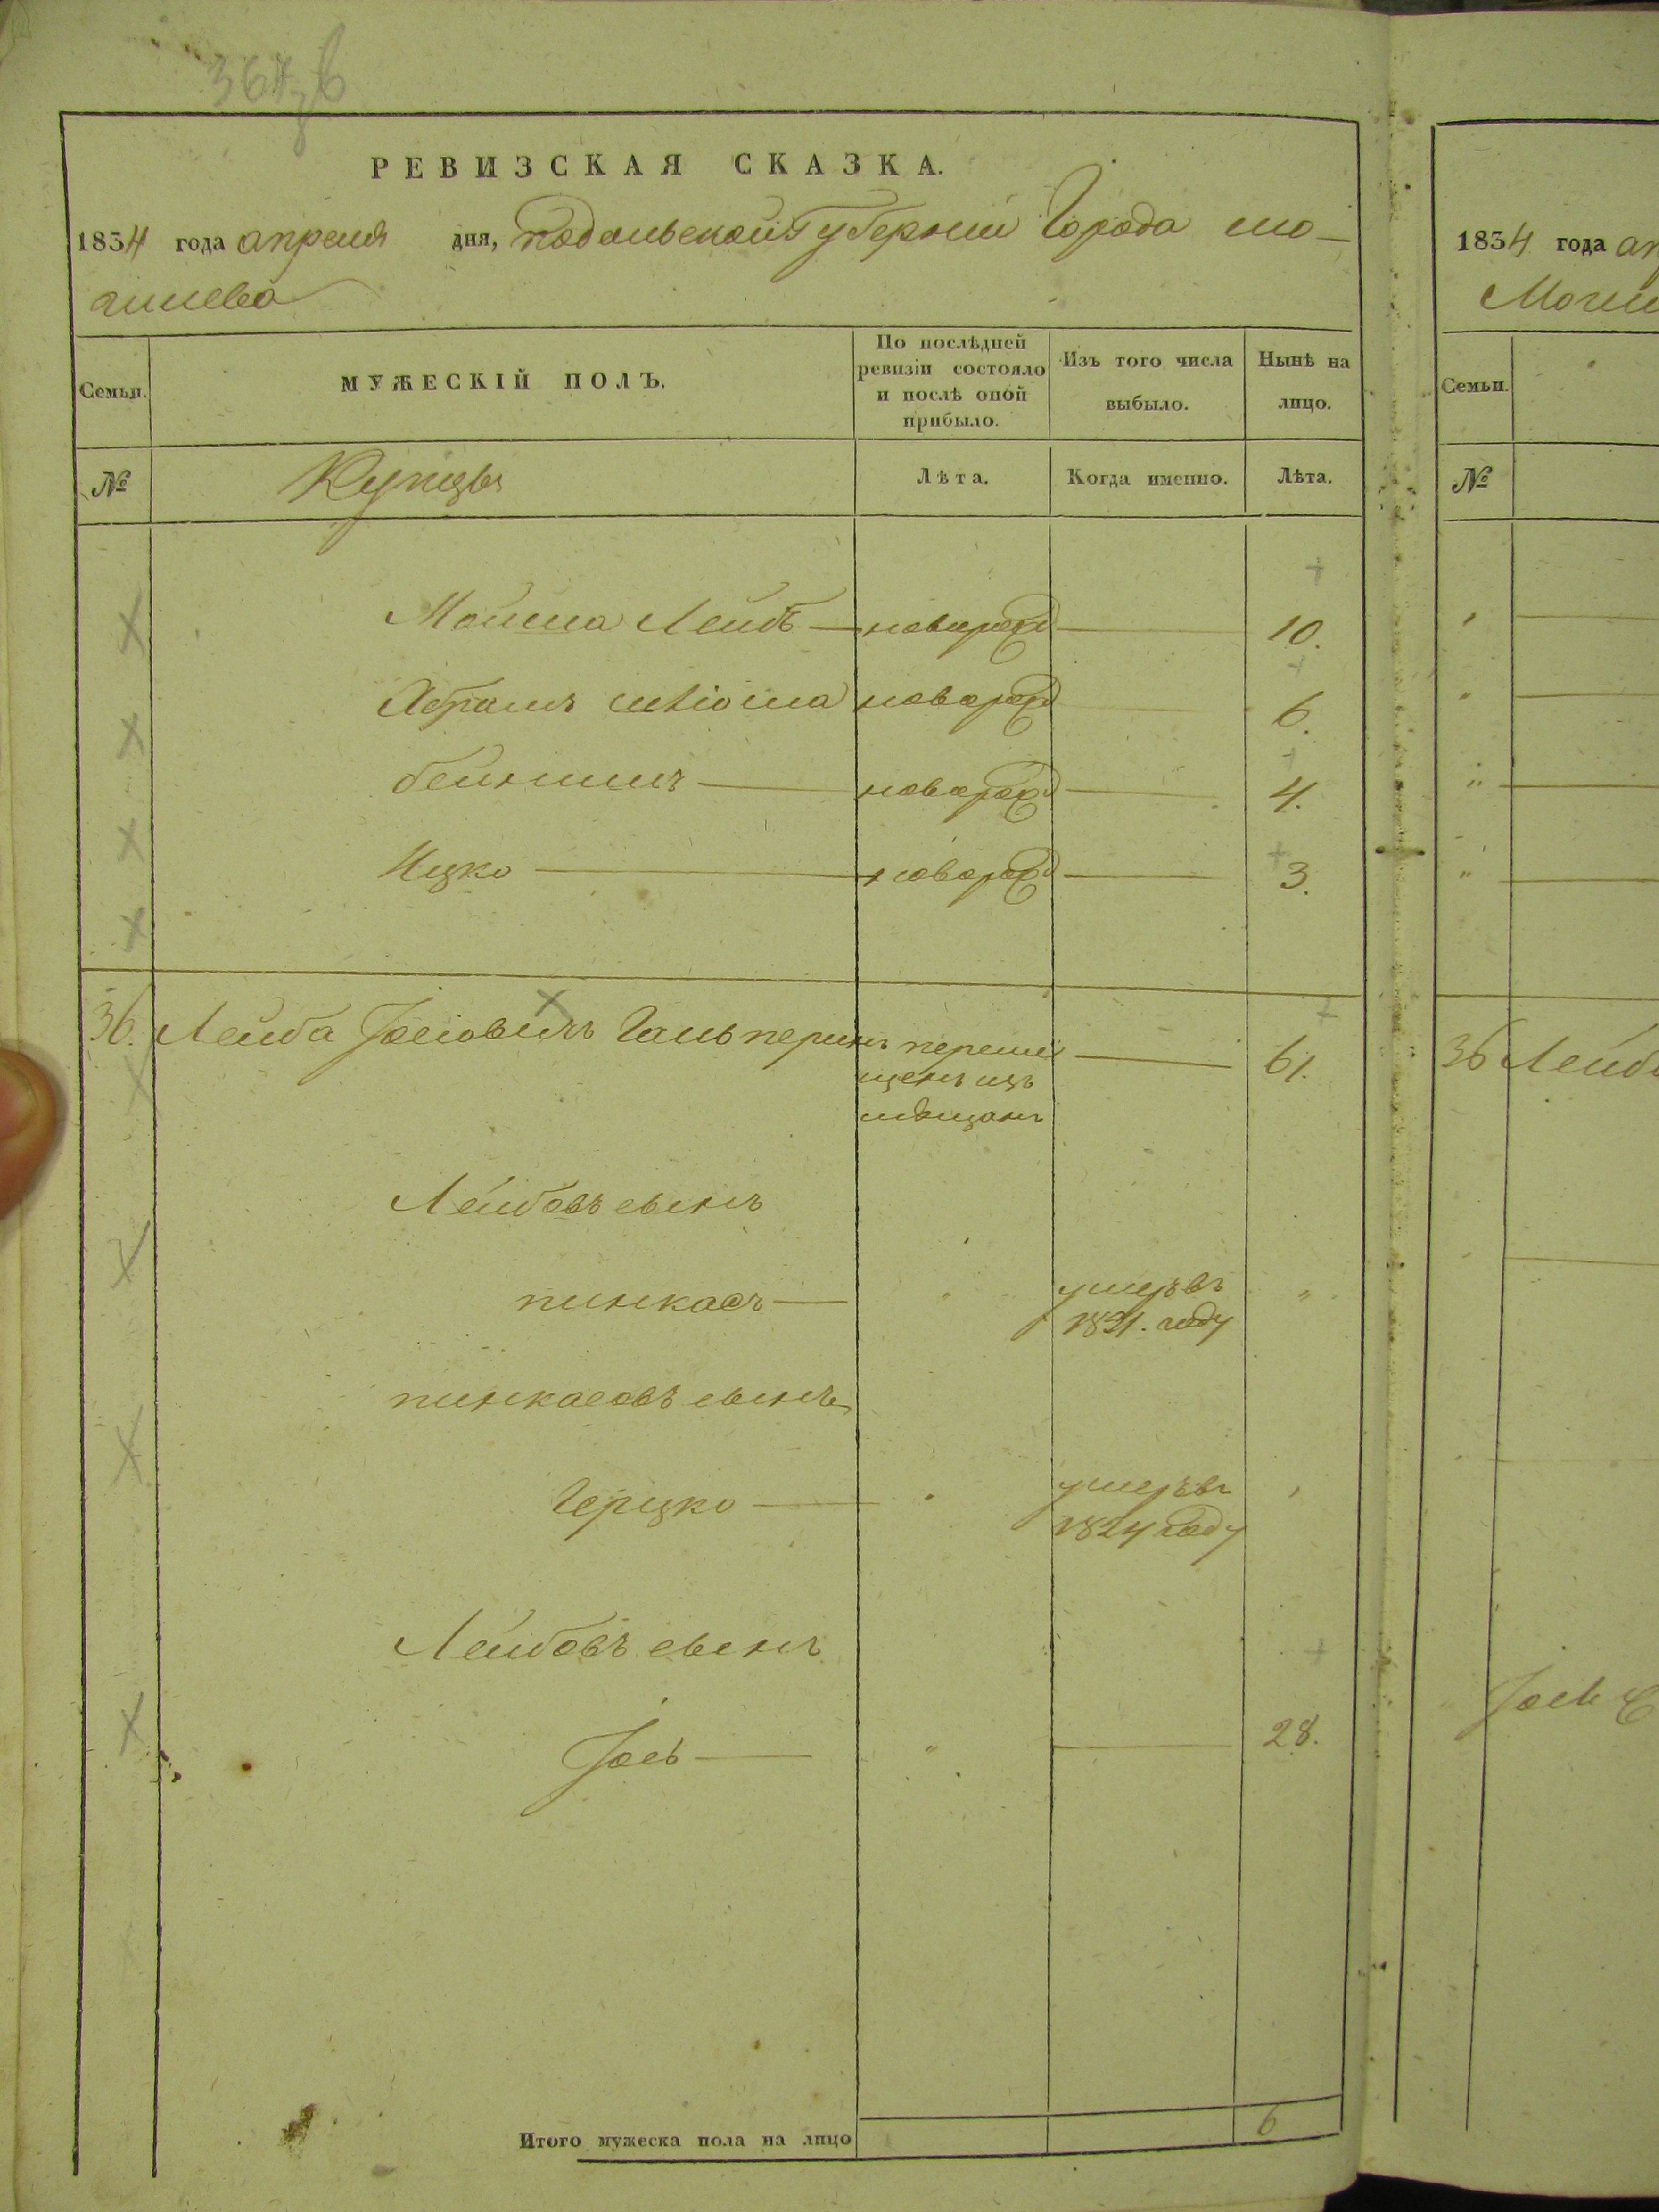 РЕВИЗСКАЯ СКАЗКА.
1834 года апреля дня, подольской Губернии Города мо-
гилева
Семьи.
МУЖЕСКІЙ ПОЛЪ.
По послѣдней ревизіи состояло и послѣ оной прибыло.
Изъ того числа выбыло.
Нынѣ на лицо.
№
Купцы
Лѣта.
Когда именно.
Лѣта.
Мошка Лейбъ новорожд 10.
Абрамъ новорожд 6.
бейнишъ новорожд 4.
Ицко новорожд 3.
36. Лейба Іосіовичъ Гальперинъ перемѣ 61.
щенъ изъ
мѣщанъ
Лейбовъ сынъ
пинкасъ умеръ въ
1831. году
пинкасовъ сынъ
Герцко умеръ въ
1824 году
Лейбовъ сынъ
Іось 28.
Итого мужеска пола на лицо 6
1834 года ап
Моги
Семьи.
№
36 Лейб